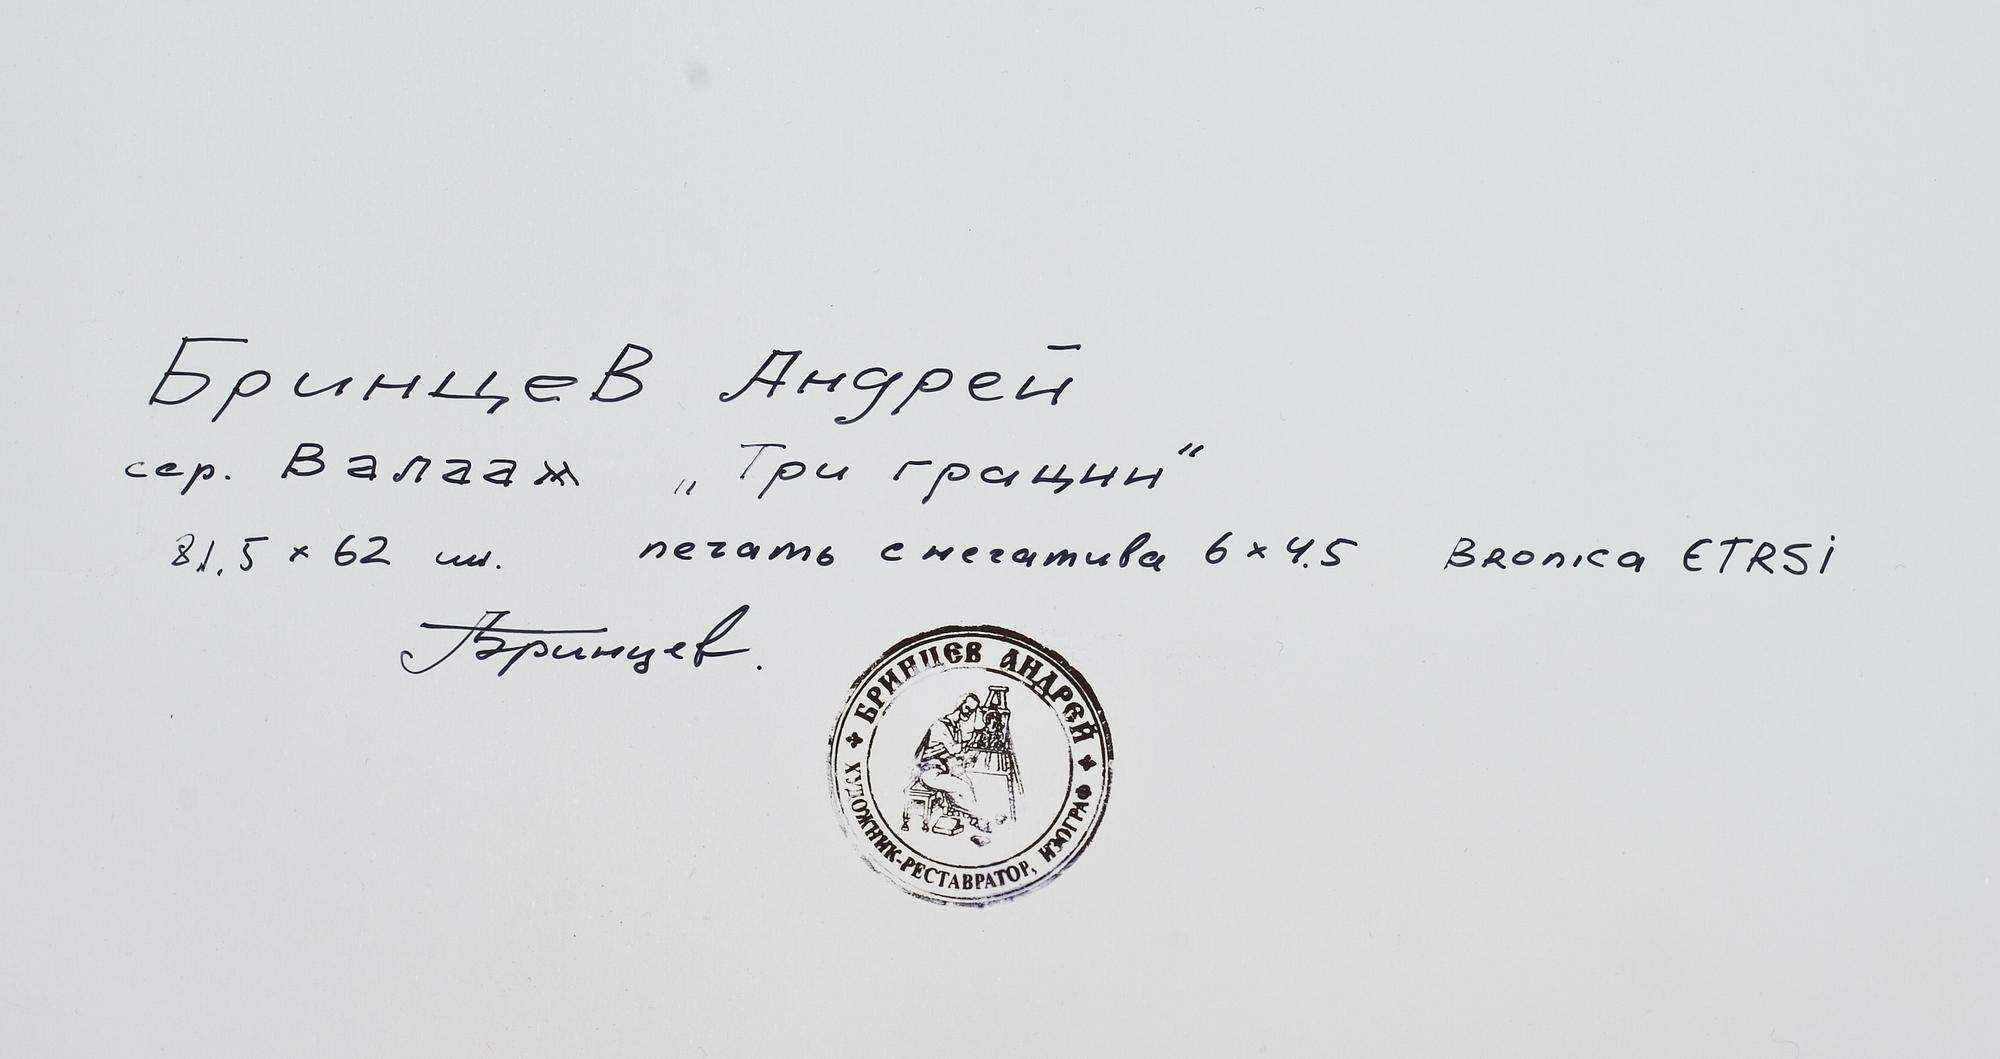 Бринцев Андрей
сер. Валаам „Три грации“
81,5 × 62 см. печать с негатива 6 × 4.5 Bronica ETRSi
Бринцев.
БРИНЦЕВ АНДРЕЙ
ХУДОЖНИК-РЕСТАВРАТОР, ИЗОГРАФ